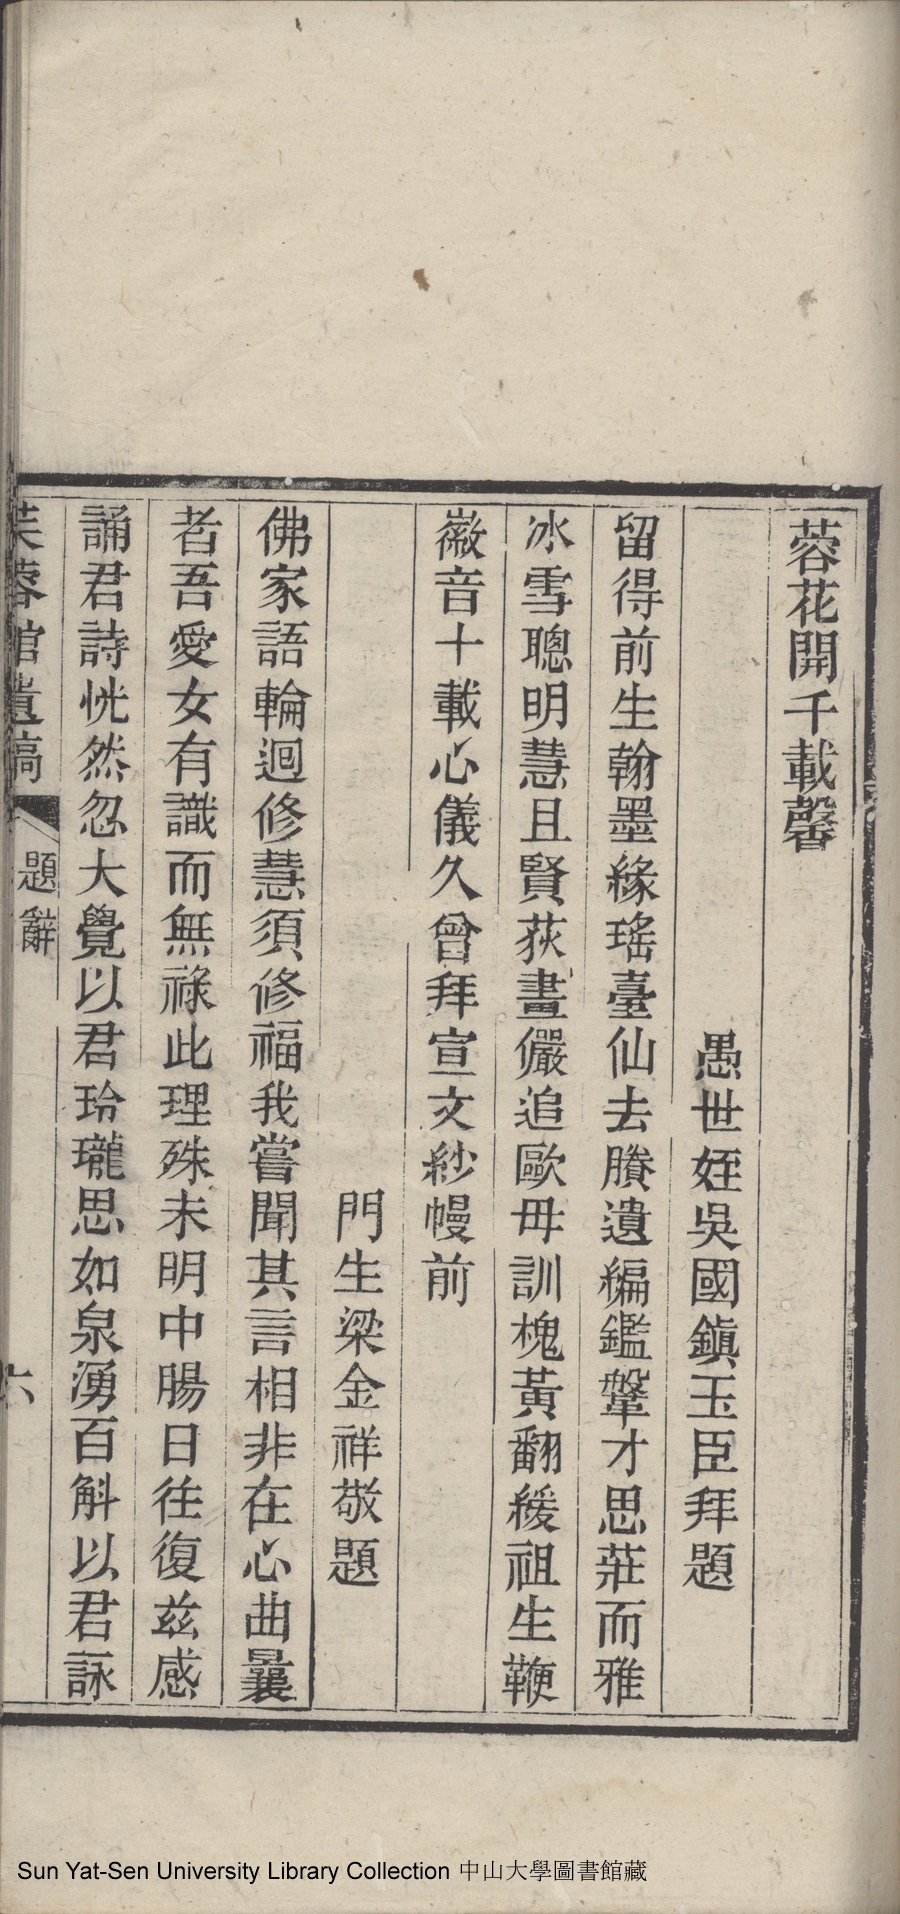 蓉花開千載馨
愚世姪吳國鎮玉臣拜題
留得前生翰墨緣瑤臺仙去賸遺編鑑鞶才思莊而雅
冰雪聰明慧且賢荻畫儼追歐母訓槐黃翻緩祖生鞭
徽音十載心儀久曾拜宣文紗幔前
門生梁金祥敬題
佛家語輪迴修慧須修福我嘗聞其言相非在心曲曩
者吾愛女有識而無祿此理殊未明中腸日往復茲感
誦君詩恍然忽大覺以君玲瓏思如泉湧百斛以君詠
芙蓉館遺稿 題辭 六
Sun Yat-Sen University Library Collection 中山大學圖書館藏